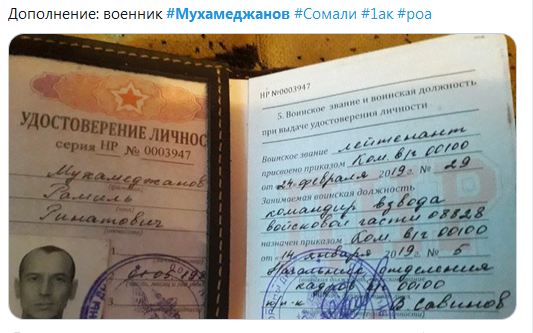 Дополнение: военник #Мухамеджанов #Сомали #1ак #роа
УДОСТОВЕРЕНИЕ ЛИЧНОС
серия НР № 0003947
Мухамеджанов
Рамиль
Ринатович
НР №0003947
5. Воинское звание и воинская должность
при выдаче удостоверения личности
Воинское звание лейтенант
присвоено приказом Ком. в/ч 00100
от "24" февраля 2019 г. № 29
Занимаемая воинская должность
командир взвода
войсковой части 08828
назначен приказом Ком. в/ч 00100
от "14" января 2019 г. № 5
Начальник отделения
кадров в/ч 00100
п/п-к В Савинов